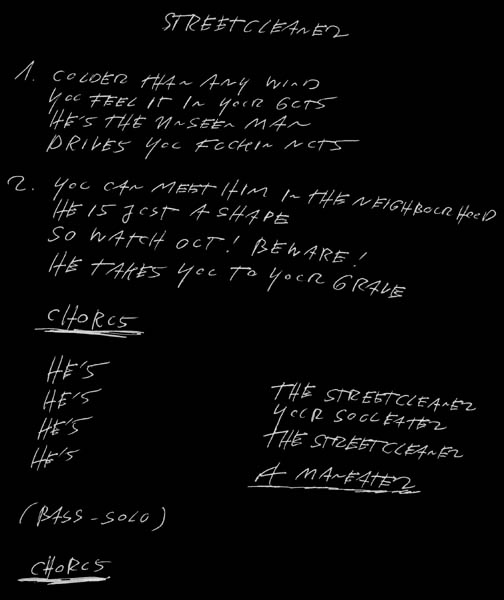 STREETCLEANER
1. COLDER THAN ANY WIND
YOU FEEL IT IN YOUR GUTS
HE'S THE UNSEEN MAN
DRIVES YOU FUCKIN NUTS
2. YOU CAN MEET HIM IN THE NEIGHBOURHOOD
HE IS JUST A SHAPE
SO WATCH OUT! BEWARE!
HE TAKES YOU TO YOUR GRAVE
CHORUS
HE'S THE STREETCLEANER
HE'S YOUR SOULEATER
HE'S THE STREETCLEANER
HE'S A MANEATER
(BASS-SOLO)
CHORUS